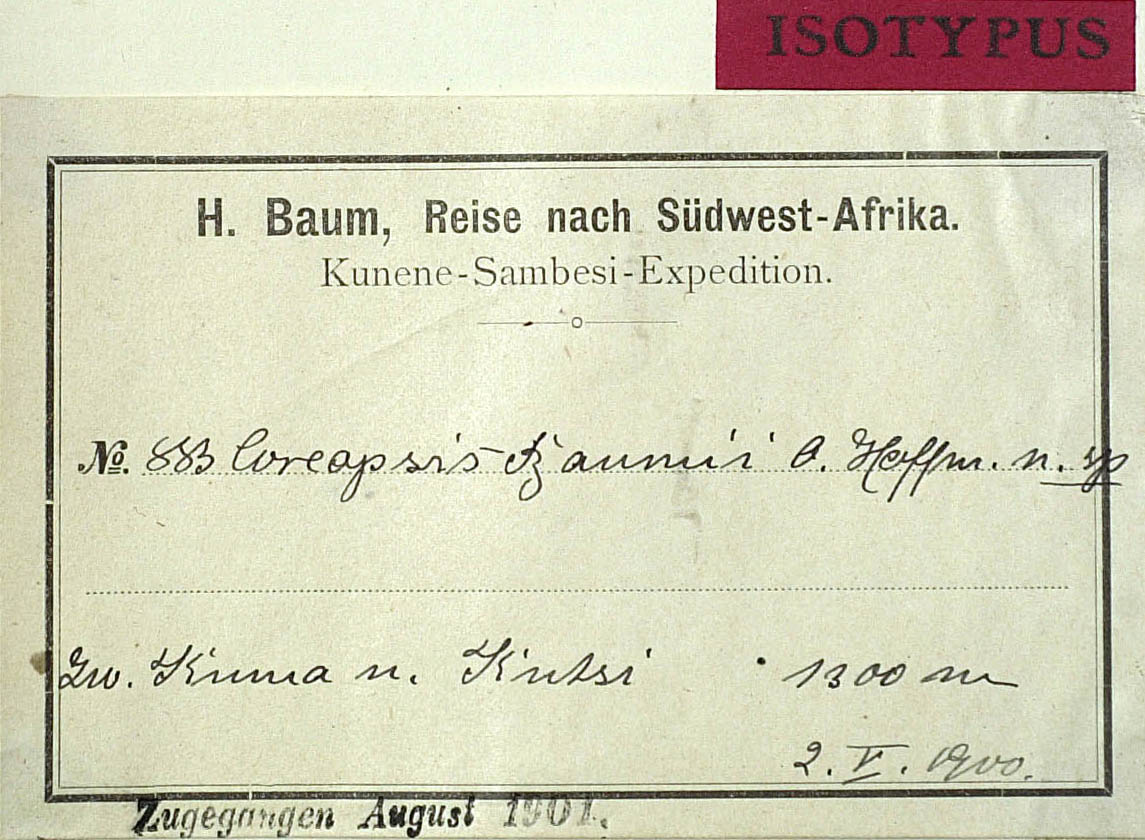 ISOTYPUS
H. Baum, Reise nach Südwest-Afrika.
Kunene-Sambesi-Expedition.
No. 883 Coreopsis Baumii O. Hoffm. n. sp
Zw. Kiuma u. Kutsi 1300 m
2. V. 1900.
Zugegangen August 1901.